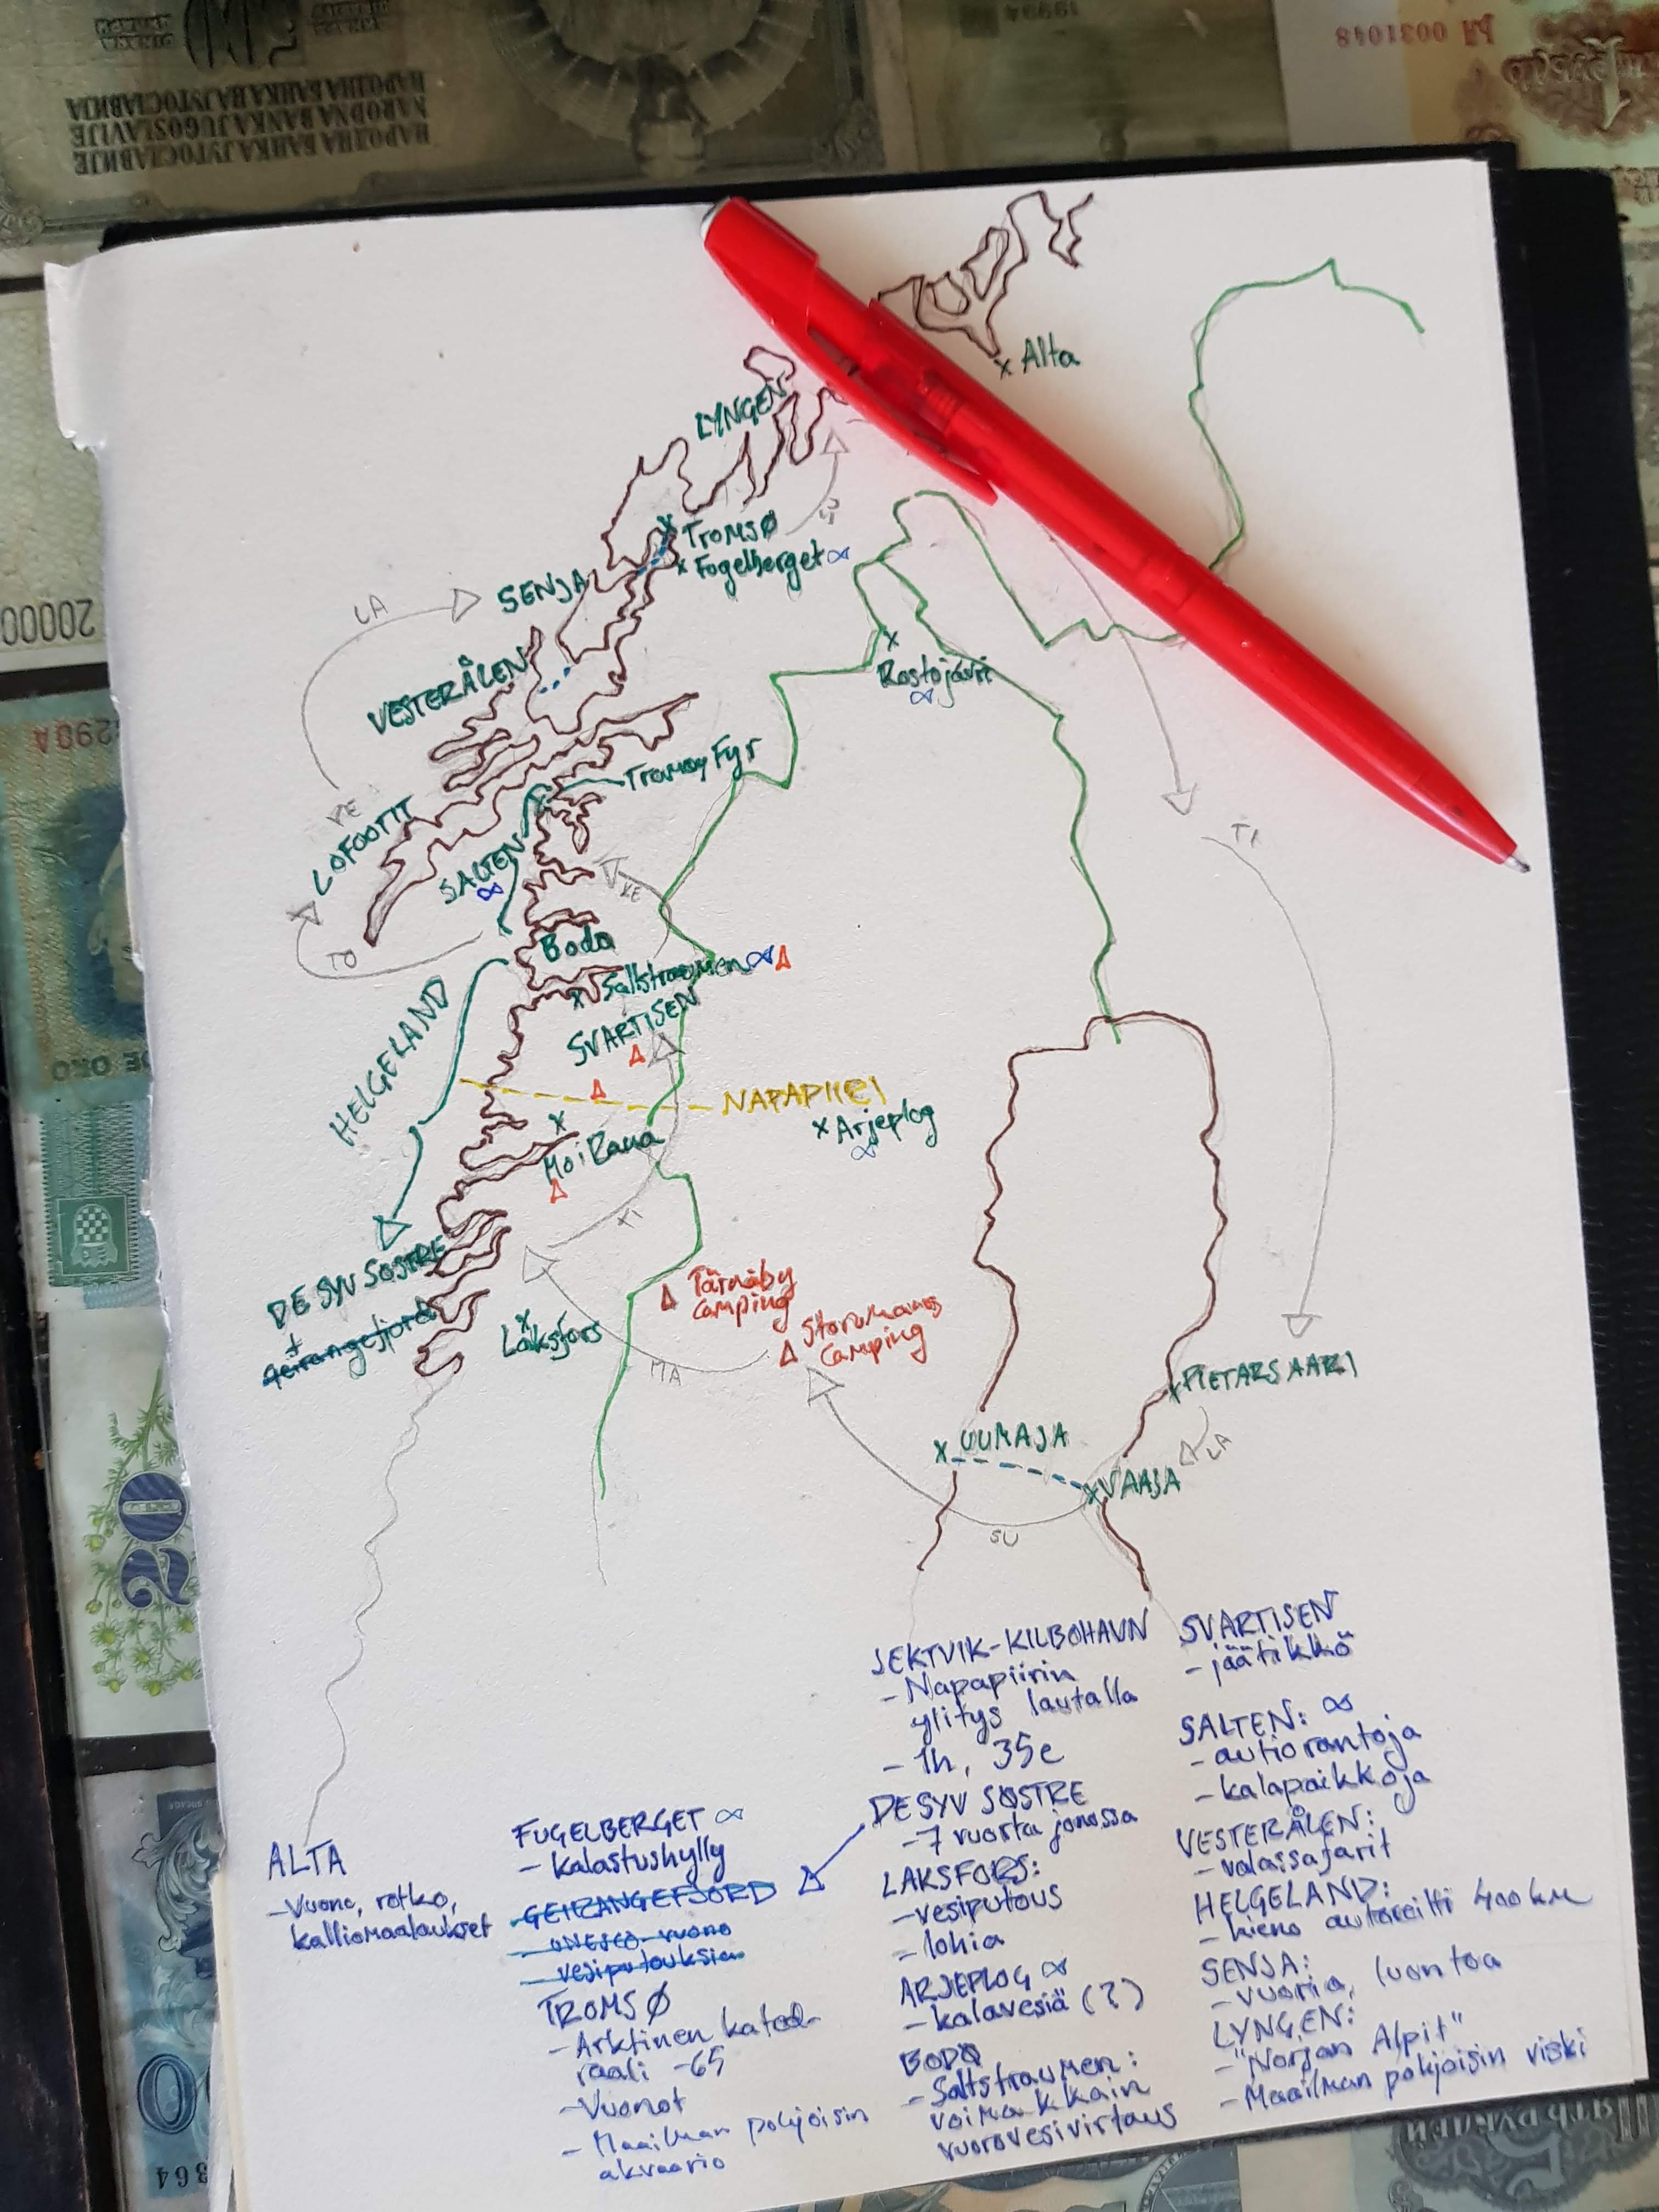 НАРОДНА БАНКА ЈУГОСЛАВИЈЕ
NARODNA BANKA JUGOSLAVIJE
НАРОДНА БАНКА ЈУГОСЛАВИЈА
0031048
20000
20
364
Alta
LYNGEN
SU
TROMSØ
Fogelberget ∞
SENJA
LA
Rostojärvi
∞
VESTERÅLEN
Tranøy Fyr
PE
LOFOOTIT
TI
SALTEN
∞
KE
TO
Bodø
Saltstraumen ∞
SVARTISEN
HELGELAND
NAPAPIIRI
Arjeplog
∞
Mo i Rana
TI
DE SYV SØSTRE
+
Geirangefjord
Tärnäby
camping
Storumans
Camping
Laksfors
MA
PIETARSAARI
UUMAJA
LA
VAASA
SU
SEKTVIK-KILBOHAVN
- Napapiirin
ylitys lautalla
- 1h, 35e
DE SYV SØSTRE
- 7 vuorta jonossa
LAKSFORS:
- vesiputous
- lohia
ARJEPLOG ∞
- kalavesiä (?)
BODØ
- Saltstraumen:
voimakkain
vuorovesivirtaus
SVARTISEN
- jäätikkö
SALTEN: ∞
- autiorantoja
- kalapaikkoja
VESTERÅLEN:
- valassafarit
HELGELAND:
- hieno autoreitti 400 km
SENJA:
- vuoria, luontoa
LYNGEN:
- "Norjan Alpit"
- Maailman pohjoisin viski
FUGELBERGET ∞
- kalastushylly
GEIRANGEFJORD
- UNESCO-vuono
- vesiputouksia
TROMSØ
- Arktinen kated-
raali -65
- Vuonot
- Maailman pohjoisin
akvaario
ALTA
- Vuono, rotko,
kalliomaalaukset